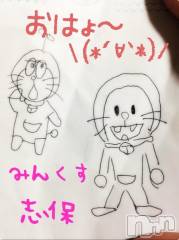 おはよ〜
\(*´∀`*)/
みんくす
志保